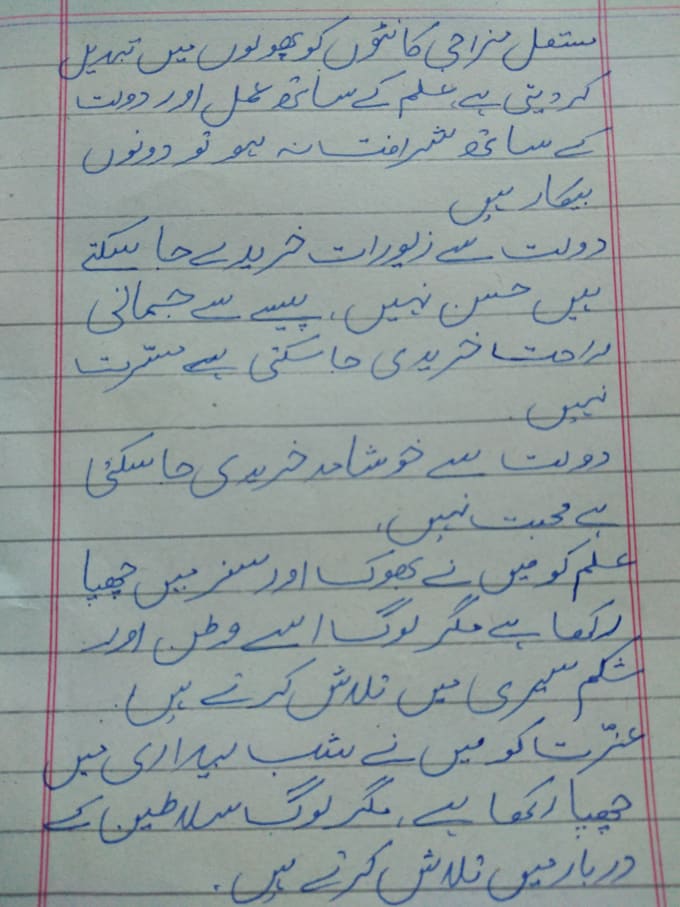 مستقل مزاجی کانٹوں کو پھولوں میں تبدیل
کر دیتی ہے، علم کے ساتھ عمل اور دولت
کے ساتھ شرافت نہ ہو تو دونوں
بیکار ہیں
دولت سے زیورات خریدے جا سکتے
ہیں حسن نہیں، پیسے سے جسمانی
راحت خریدی جا سکتی ہے مسرّت
نہیں.
دولت سے خوشامد خریدی جا سکتی
ہے محبت نہیں،
علم کو میں نے بھوک اور سفر میں چھپا
رکھا ہے مگر لوگ اسے وطن اور
شکم سیری میں تلاش کرتے ہیں.
عزّت کو میں نے شب بیداری میں
چھپا رکھا ہے، مگر لوگ سلاطین کے
دربار میں تلاش کرتے ہیں.